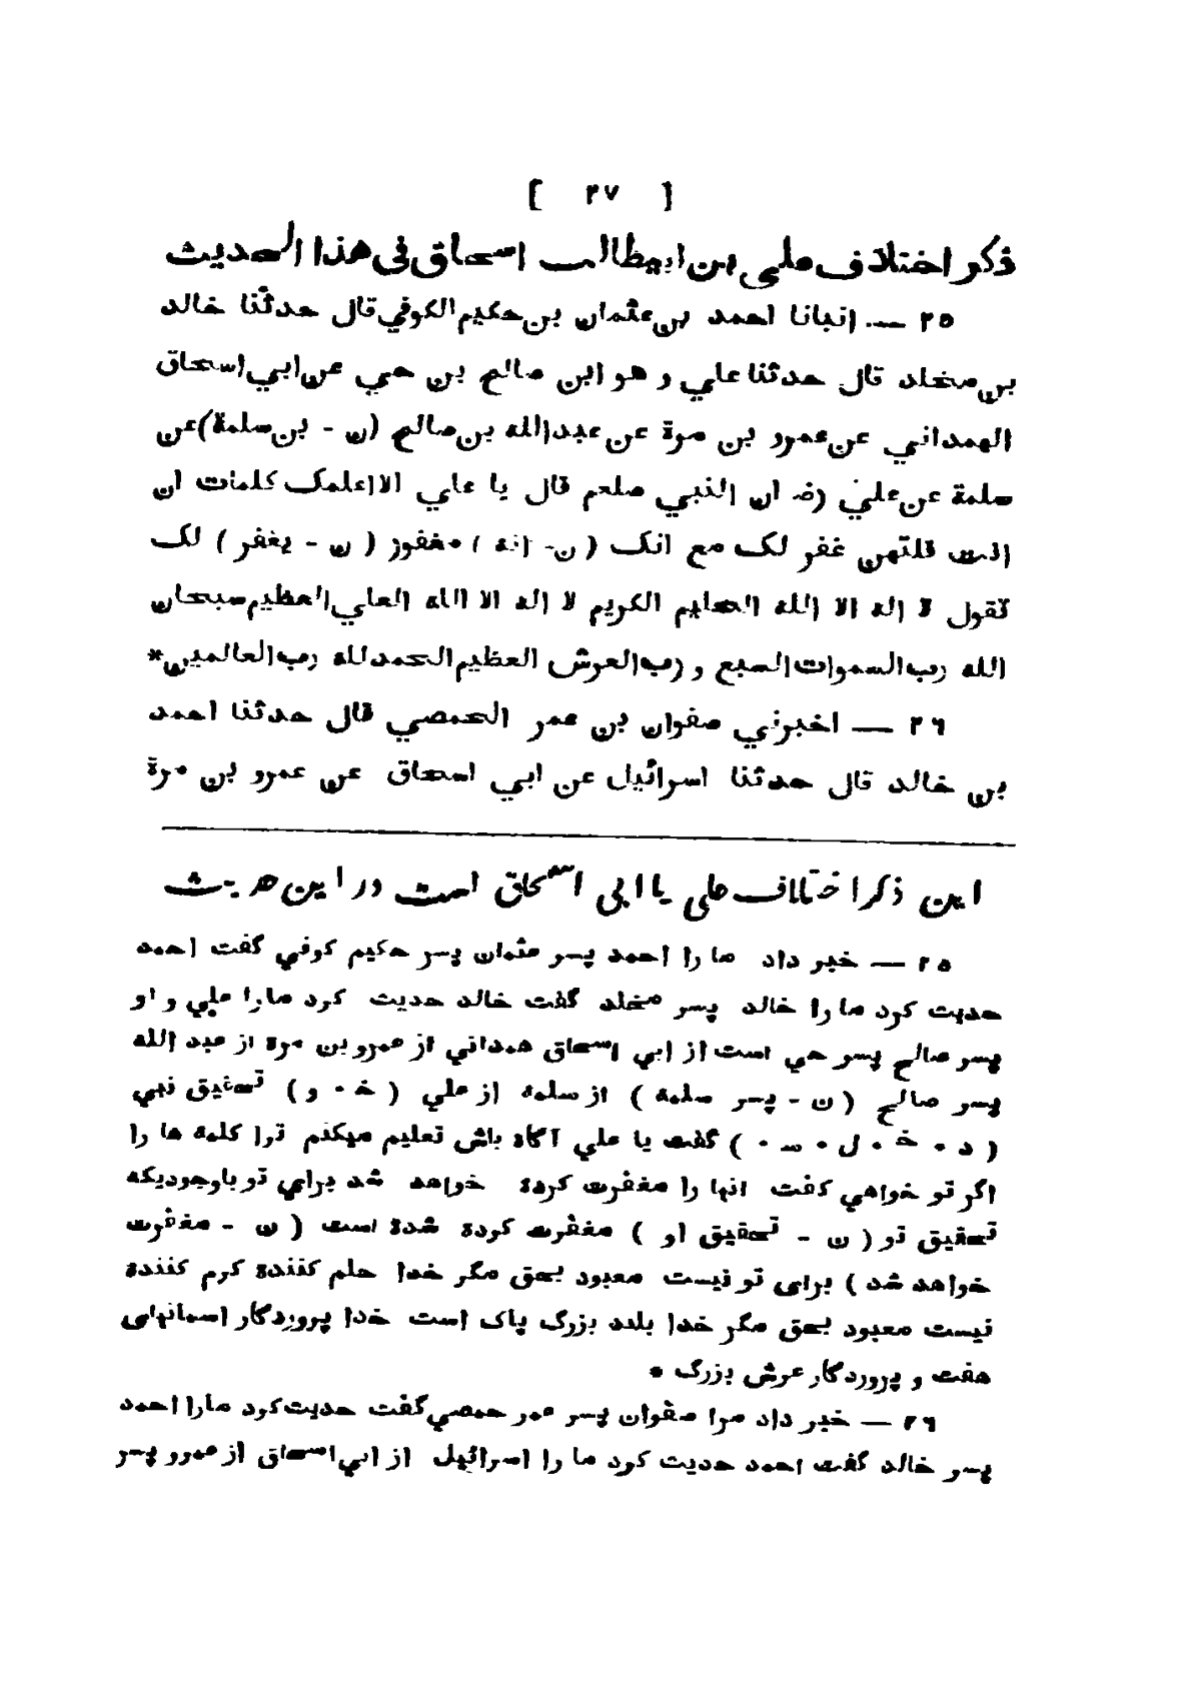 [ ٢٧ ]
ذكر اختلاف علي بن ابيطالب اسحاق في هذا الحديث
٢٥ — انبانا احمد بن عثمان بن حكيم الكوفي قال حدثنا خالد
بن مخلد قال حدثنا علي و هو ابن صالح بن حي عن ابي اسحاق
الهمداني عن عمرو بن مرة عن عبدالله بن صالح (ن - بن سلمة) عن
سلمة عن علي رضـ ان النبي صلعم قال يا علي الا اعلمك كلمات ان
انت قلتهن غفر لك مع انك ( ن- انه ) مغفور ( ن - يغفر ) لك
تقول لا اله الا الله الحليم الكريم لا اله الا الله العلي العظيم سبحان
الله رب السموات السبع و رب العرش العظيم الحمد لله رب العالمين *
٢٦ — اخبرني صفوان بن عمر الحمصي قال حدثنا احمد
بن خالد قال حدثنا اسرائيل عن ابي اسحاق عن عمرو بن مرة
اين ذكر اختلاف علي يا ابي اسحاق است در اين حديث
٢٥ — خبر داد ما را احمد پسر عثمان پسر حكيم كوفي گفت احمد
حديث كرد ما را خالد پسر مخلد گفت خالد حديث كرد مارا علي و او
پسر صالح پسر حي است از ابي اسحاق همداني از عمرو بن مرة از عبد الله
پسر صالح ( ن - پسر سلمة ) از سلمة از علي ( خ ٠ و ) تحقيق نبي
( د ٠ خ ٠ ل ٠ س ٠ ) گفت يا علي آگاه باش تعليم ميكنم ترا كلمه ها را
اگر تو خواهي گفت انها را مغفرت كرده خواهد شد براي تو باوجوديكه
تحقيق تو ( ن - تحقيق او ) مغفرت كرده شدة است ( ن - مغفرت
خواهد شد ) براى تو نيست معبود بحق مگر خدا حلم كنندة كرم كنندة
نيست معبود بحق مگر خدا بلند بزرگ پاک است خدا پروردگار اسمانهاى
هفت و پروردگار عرش بزرگ *
٢٦ — خبر داد مرا صفوان پسر عمر حمصي گفت حديث كرد مارا احمد
پسر خالد گفت احمد حديث كرد ما را اسرائيل از ابي اسحاق از عمرو پسر